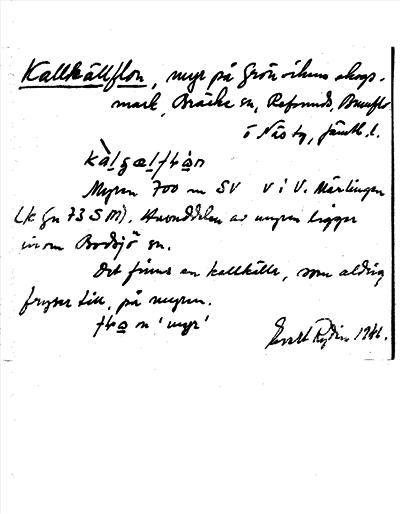 Kallkällflon, myr på Grönvikens skogs-
mark, Bräcke sn, Refsunds, Brunflo
o Näs tg, Jämtl. l.
Myren 700 m SV v i V. Märlingen
(k Gn 73 S M). Huvuddelen av myren ligger
inom Bodsjö sn.
Det finns en kallkälla, som aldrig
fryser till, på myren.
'myr'
Evert Rydin 1946.